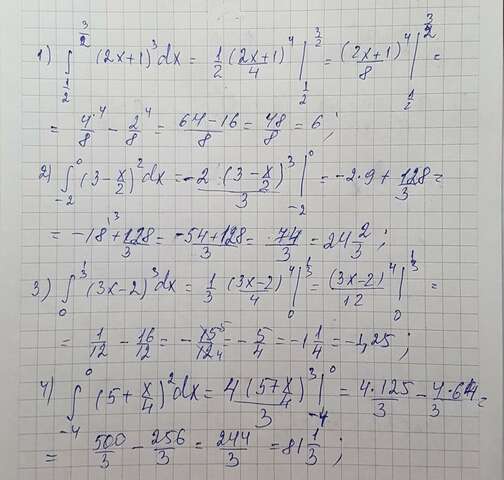 1) ∫_{1/2}^{3/2} (2x+1)^3 dx = 1/2 (2x+1)^4/4 |_{1/2}^{3/2} = (2x+1)^4/8 |_{1/2}^{3/2} =
= 4^4/8 - 2^4/8 = (64-16)/8 = 48/8 = 6 ;
2) ∫_{-2}^{0} (3 - x/2)^2 dx = -2 · (3 - x/2)^3/3 |_{-2}^{0} = -2·9 + 128/3 =
= -18^{\3} + 128/3 = (-54+128)/3 = 74/3 = 24 2/3 ;
3) ∫_{0}^{1/3} (3x-2)^3 dx = 1/3 (3x-2)^4/4 |_{0}^{1/3} = (3x-2)^4/12 |_{0}^{1/3} =
= 1/12 - 16/12 = -15^5/12_4 = -5/4 = -1 1/4 = -1,25 ;
4) ∫_{-4}^{0} (5 + x/4)^2 dx = 4(5 + x/4)^3/3 |_{-4}^{0} = 4·125/3 - 4·64/3 =
= 500/3 - 256/3 = 244/3 = 81 1/3 ;